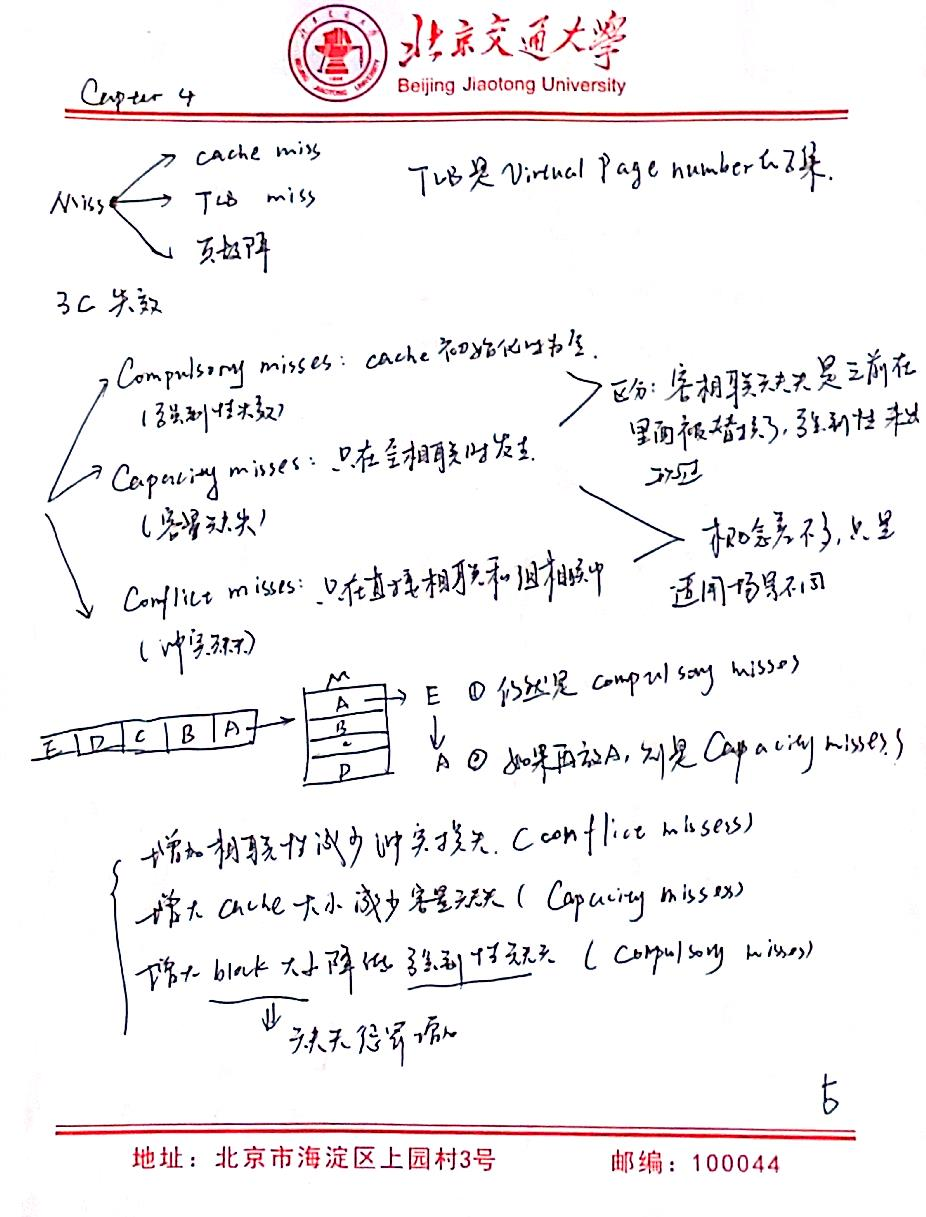 北京交通大學
Beijing Jiaotong University
Capter 4
Miss
cache miss
TLB miss
页故障
TLB是Virtual Page number的子集.
3C 失效
Compulsory misses: cache初始化时为空.
(强制性失效)
Capacity misses: 只在全相联时发生.
(容量缺失)
Conflict misses: 只在直接相联和组相联中
(冲突缺失)
区分: 容相联缺失是之前在
里面被替换了, 强制性未出
现过
概念差不多, 只是
适用场景不同
E D C B A
M
A
B
C
D
E ① 仍然是 compulsory misses
A ② 如果再放A, 则是 Capacity misses
增加相联性减少冲突损失. (conflict missess)
增大 cache 大小减少容量缺失 (Capacity misses)
增大 block 大小降低强制性缺失 (Compulsory misses)
缺失惩罚增加
5
地址：北京市海淀区上园村3号
邮编：100044